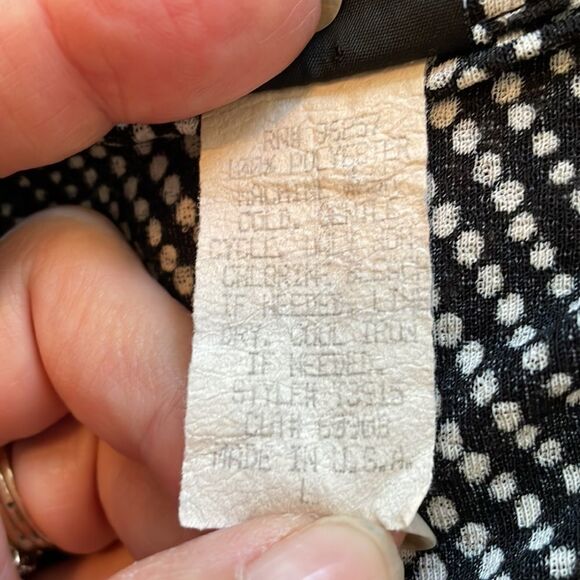 RN# 95257
100% POLYESTER
MACHINE WASH
COLD, GENTLE
CYCLE, NON
CHLORINE BLEACH
IF NEEDED. LINE
DRY. COOL IRON
IF NEEDED.
STYLE# 13915
CUT#
MADE IN U.S.A.
L